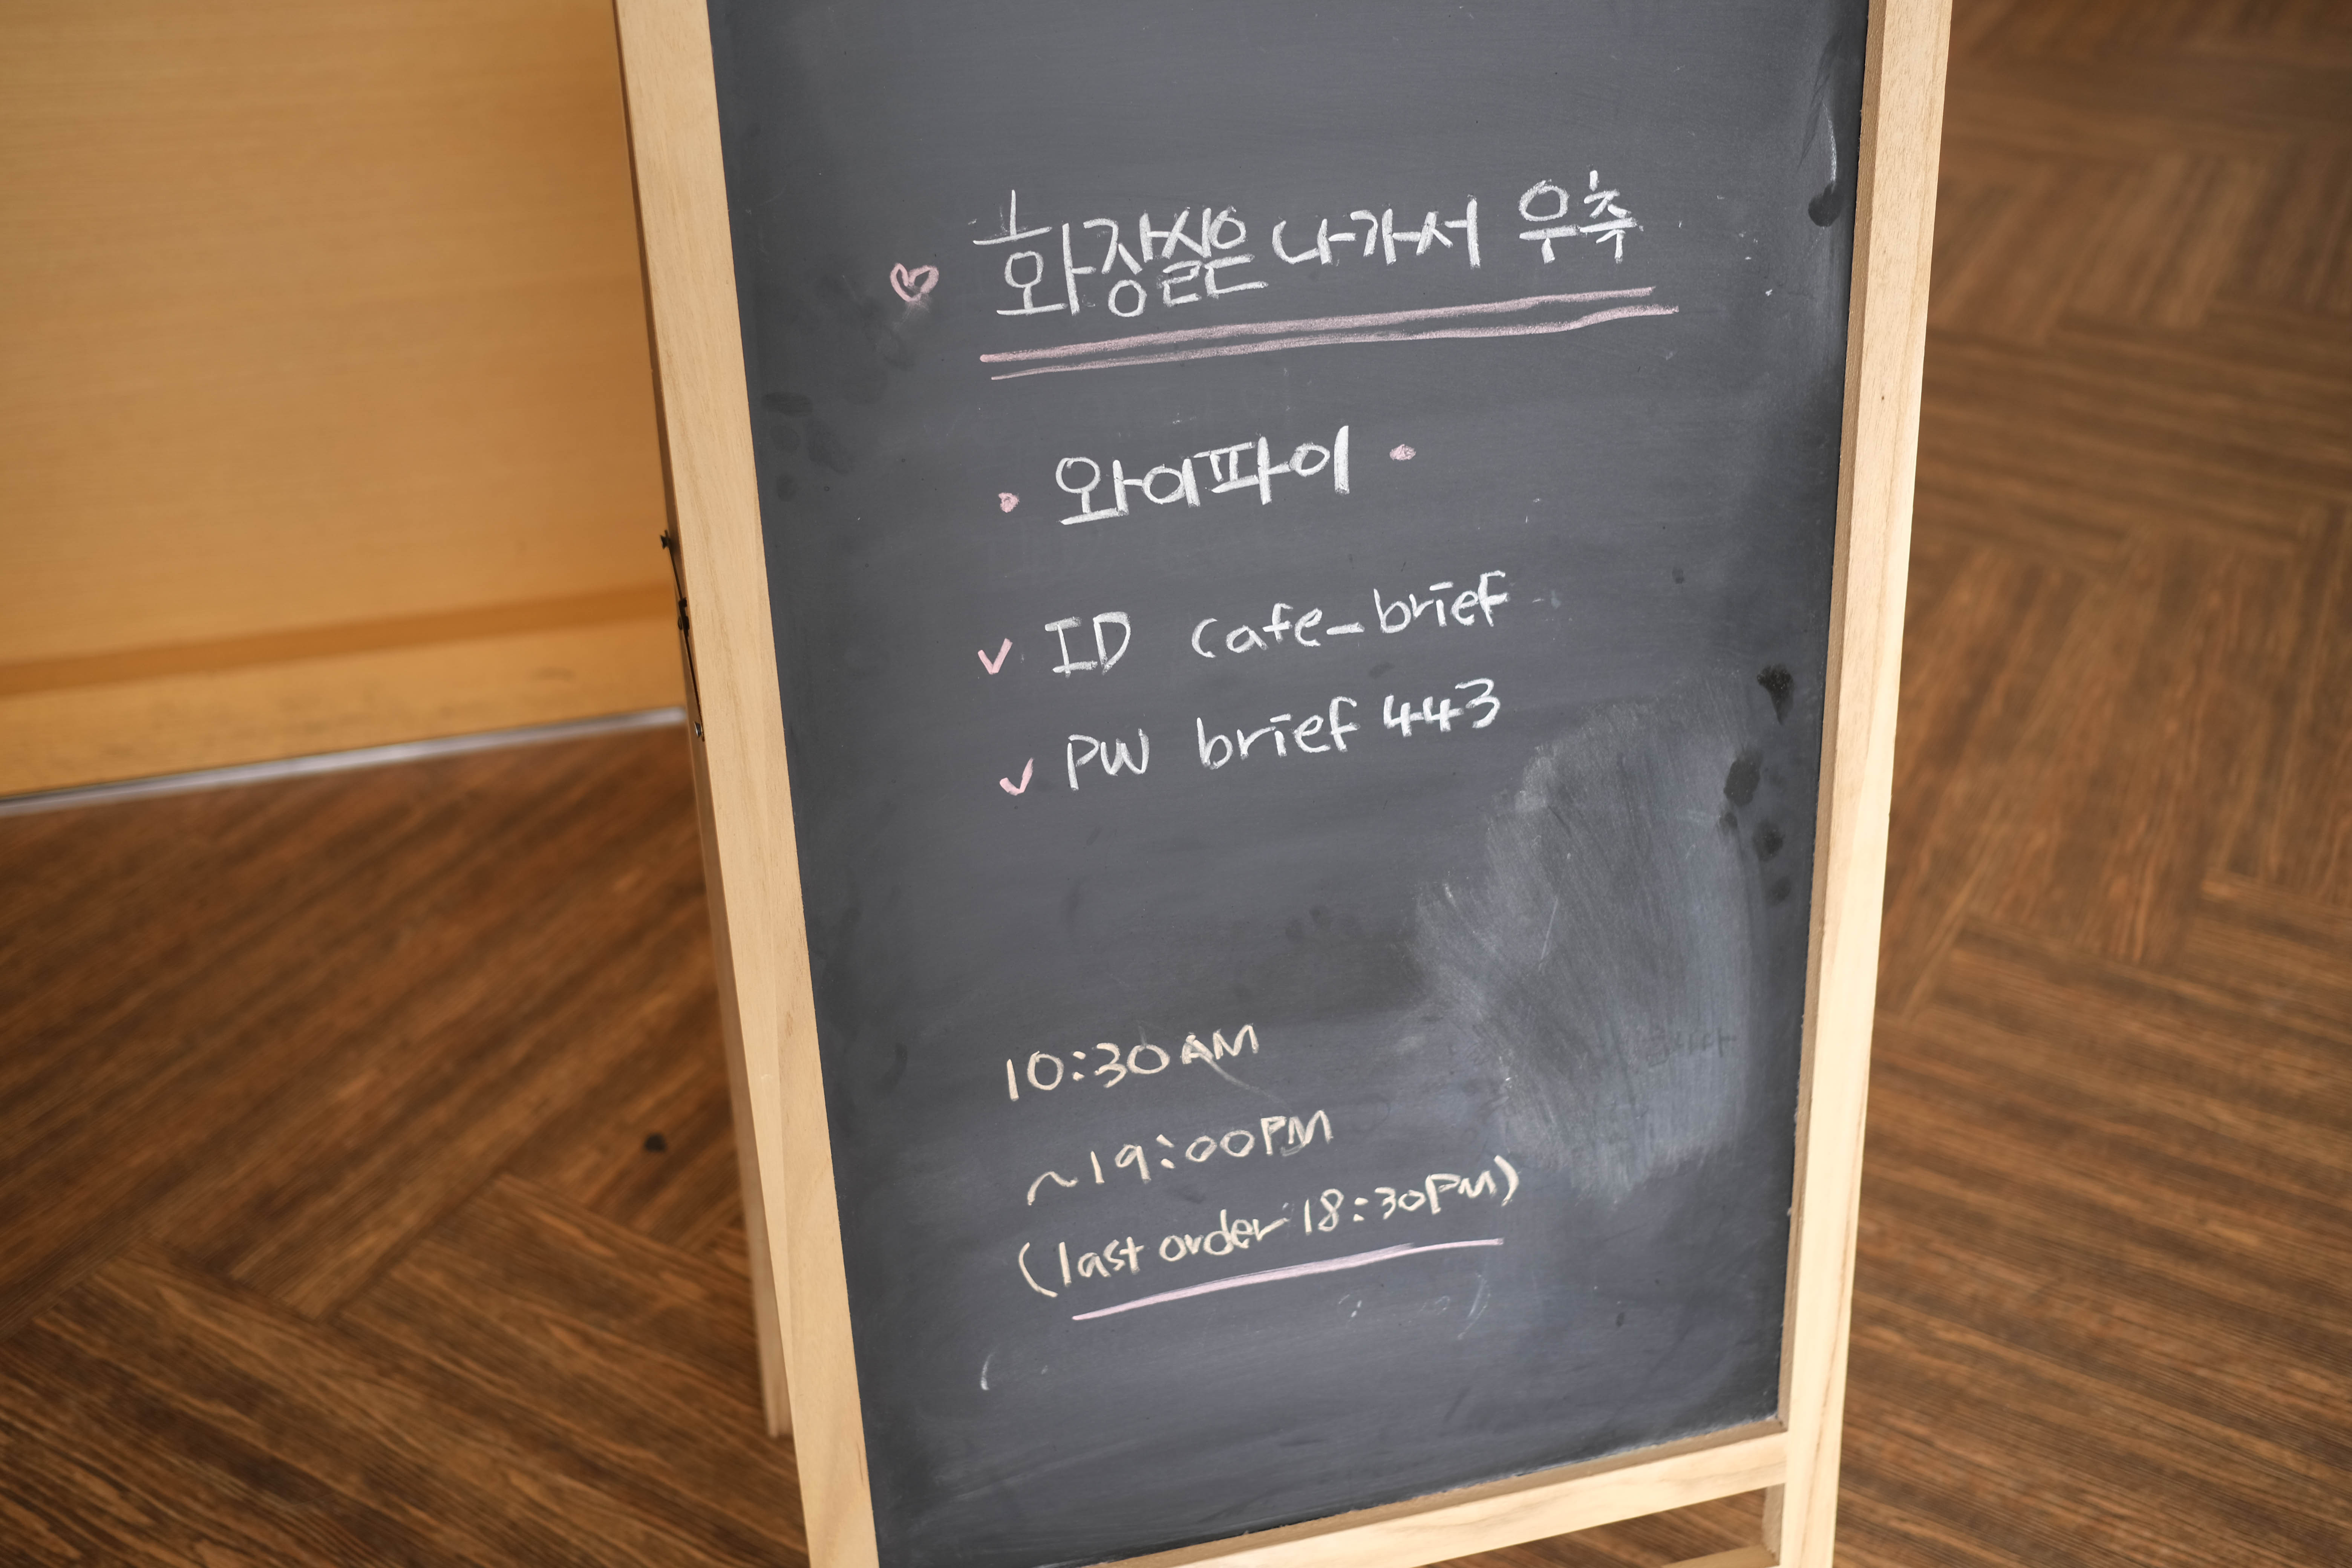 화장실은 나가서 우측
와이파이
ID cafe_brief
PW brief 443
10:30AM
~19:00PM
(last order 18:30PM)